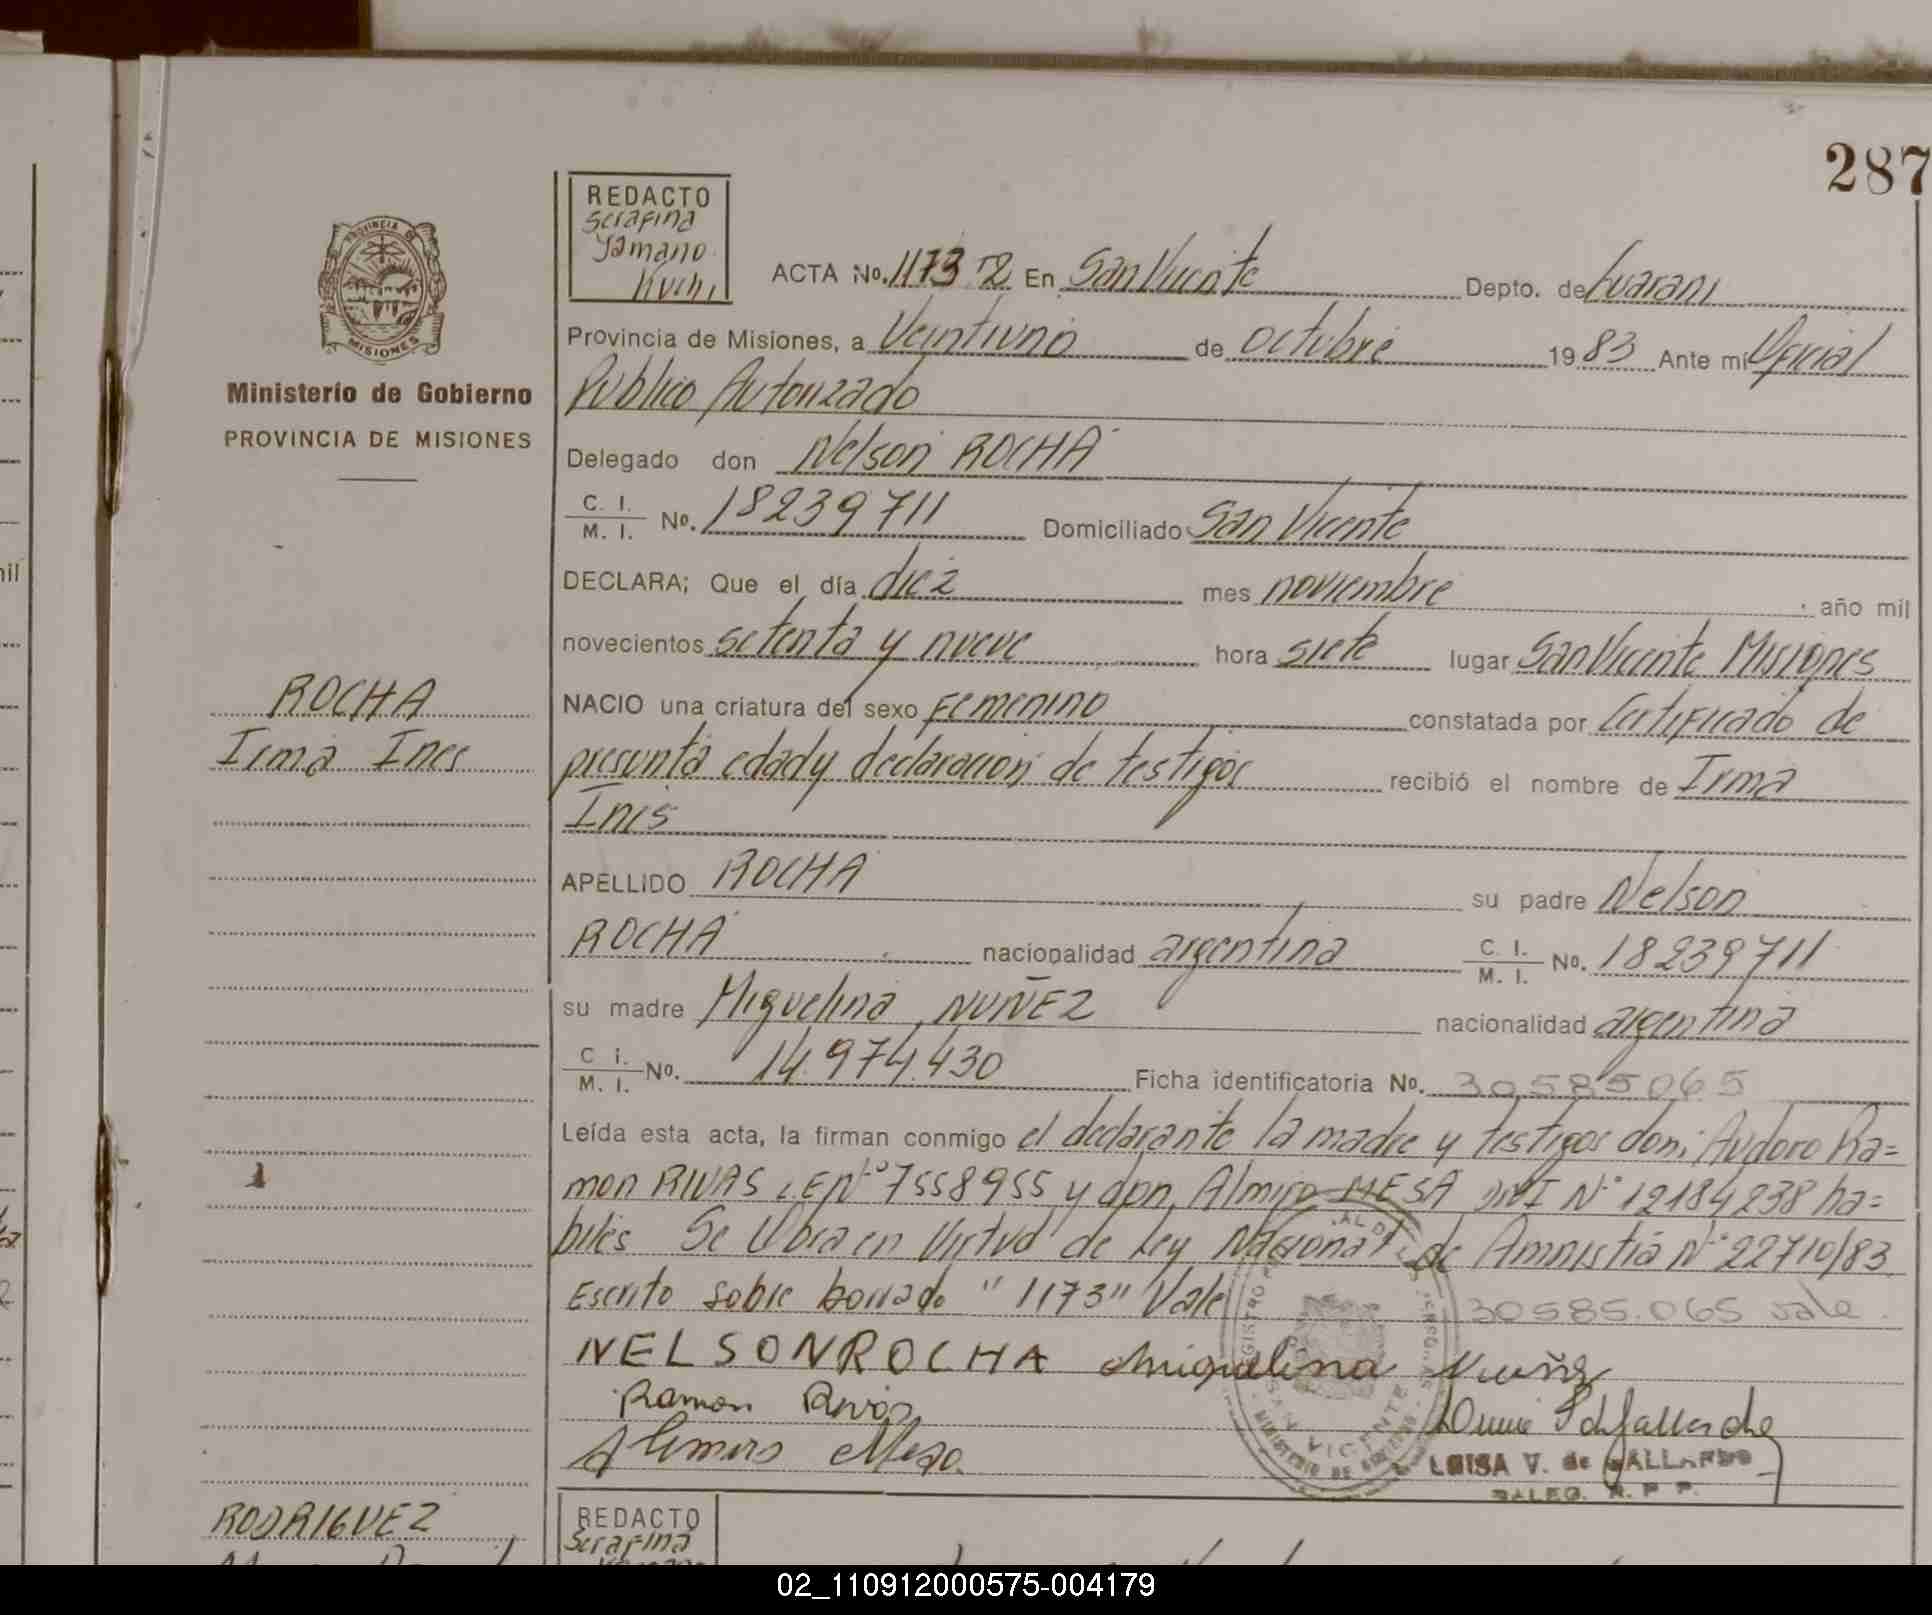 287
REDACTO
Serafina
Yamano
Kuchi
ACTA No. 1173 T2 En San Vicente Depto. de Guarani
Provincia de Misiones, a Veintiuno de octubre 1983 Ante mí Oficial
Publico Autorizado
Delegado don Nelson ROCHA
C. I. / M. I. No. 18239711 Domiciliado San Vicente
DECLARA; Que el día diez mes noviembre año mil
novecientos setenta y nueve hora siete lugar San Vicente Misiones
NACIO una criatura del sexo Femenino constatada por Certificado de
presunta edad y declaracion de testigos recibió el nombre de Irma
Ines
APELLIDO ROCHA su padre Nelson
ROCHA nacionalidad argentina C. I. / M. I. No. 18239711
su madre Miguelina NUÑEZ nacionalidad argentina
C i. / M. I. No. 14.974.430 Ficha identificatoria No. 30585065
Leída esta acta, la firman conmigo el declarante la madre y testigos don: Audoro Ra=
mon RIVAS L.E Nº 7558955 y don Almiro MESA DNI Nº 12184238 ha=
biles Se Labra en Virtud de Ley Nacional de Amnistia Nº 22710/83
Escrito sobre borrado "1173" Vale 30585.065 vale.
NELSON ROCHA Miquelina Nuñez
Ramon Rivas
Almiro Mesa
LUISA V. de GALLARDO
DALEG. R. P. P.
SAN VICENTE
PROVINCIA DE
MISIONES
Ministerio de Gobierno
PROVINCIA DE MISIONES
ROCHA
Irma Ines
RODRIGUEZ
REDACTO
Serafina
02_110912000575-004179